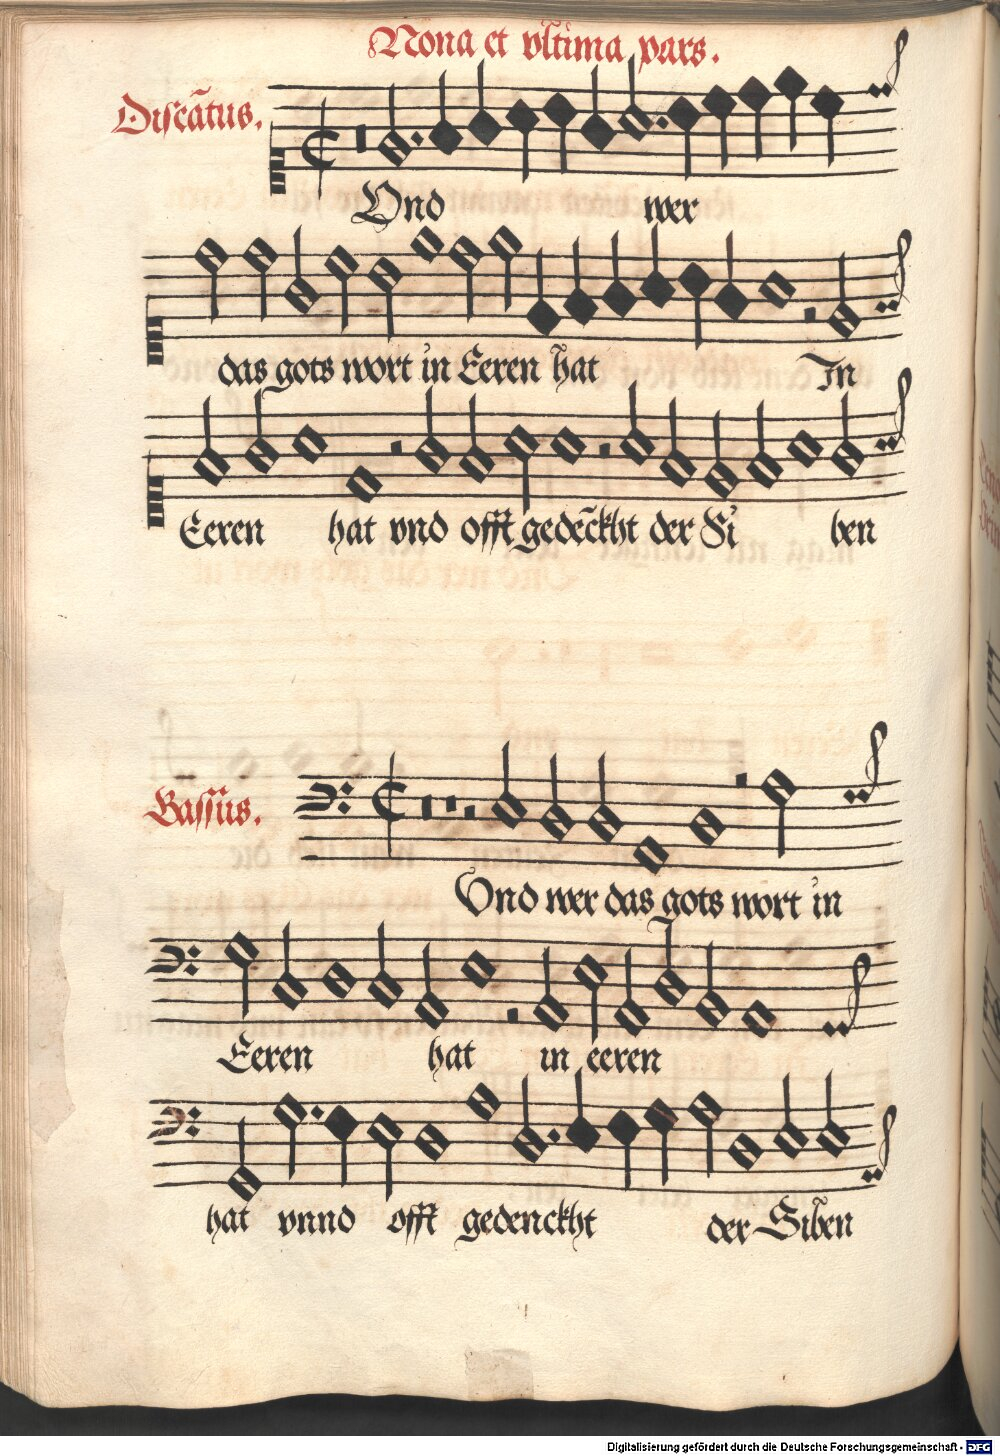 Nona et vltima pars.
Discātus.
Vnd wer
das gots wort in Eeren hat In
Eeren hat vnd offt gedēckht der Si ben
Bassus.
Vnd wer das gots wort in
Eeren hat in eeren
hat vnnd offt gedenckht der Siben
Digitalisierung gefördert durch die Deutsche Forschungsgemeinschaft - DFG